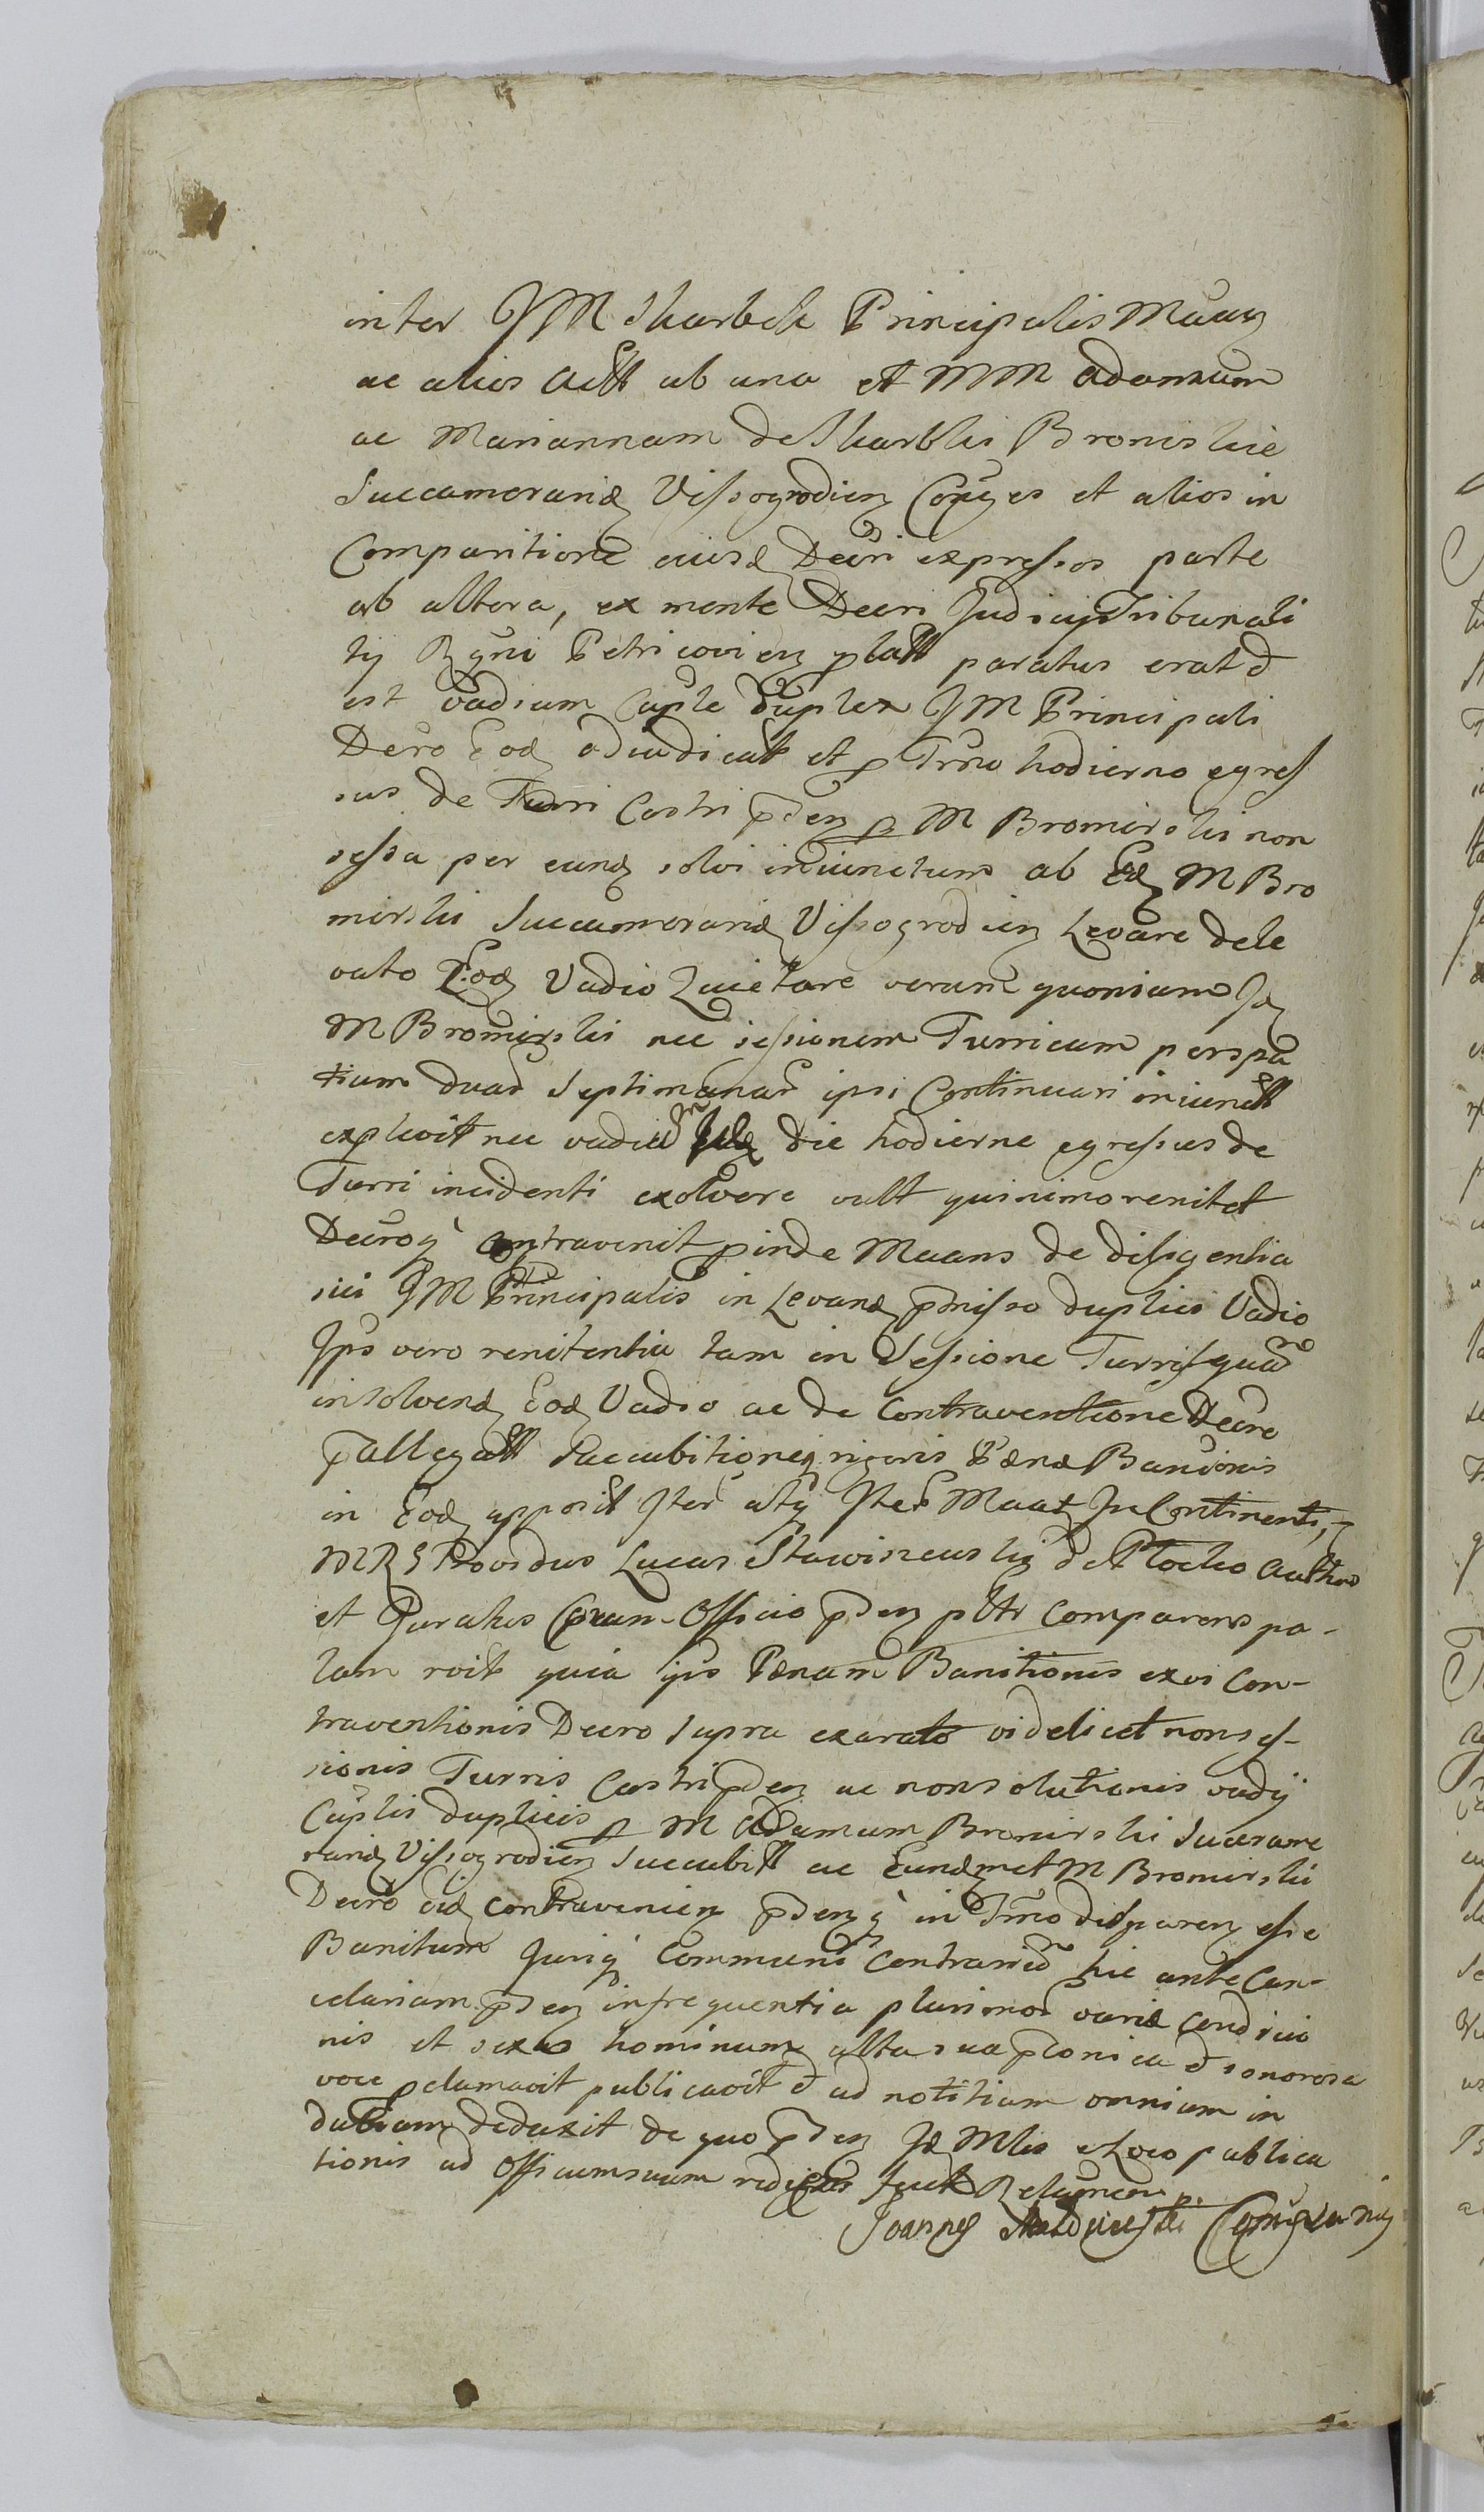 inter JM Skarbek Principalis Muarz
ac alios Actt ab una et MM Adamum
ac Mariannam de Skarbki Bromirskie
Succamerariæ Vissogrodien Coñges et alios in
Comparitione eiusd Decri expressos parte
ab altera, ex mente Decri Judicij Tribunali
tij Rgni Petricovien platt paratus erat
est vadium Cuple duplex JM Principali
Decro Eod adiudicatt et p Trno hodierno egres
sus de Turri Castri pden p M Bromirski non
sessa per eund solvi iniunctum ab Eod M Bro
mirski Succamerarie Vissogrodien Levare dele
vato Eod Vadio Quietare verum quoniam Id
M Bromirski nec sessionem Turricum per spa
tium duar Septimanar ipsi Continuari iniunctt
explevit nec vadium die hodierne egressus de
Turri incidenti exolvere vult quinimo renitet
Decroq contravenit pinde Muans de diligentia
sui JM Principalis in Levand pmisso duplici Vadio
Ips vero renitentia tam in Sessione Turris quam
in solvend Eod Vadio ac de Contraventione Decro
pallegatt Succubitioneq rigoris Pænæ Banionis
in Eod apposit Iter atq Iter Muat In Continenti,
MRS Providus Lucas de Plocko Authen
et Juratus Coram Officio pden pltr Comparens pa-
lam roit quia ips Pænam Banitionis exvi Con-
traventionis Decro supra exarato videlicet non ses-
sionis Turris Castri pden ac non solutionis vadij
Cuplis duplicis p M Adamum Bromirski Succame
rarie Vissogrodien Succubitt ac Eundmet M Bromirski
Decro eid Contravenien pdenq in Trno disparen esse
Banitum Juriq Communi Contrarium hic ante Can-
celariam pden infrequentia plurimor variæ Conditio
nis et sexus hominum alta sua pconica et sonorosa
voce pclamavit publicavit et ad notitiam omnium in
dubiam deduxit de quo pden Id Mlis eLoco publica
tionis ad Officium suum rediens fecit Relaonem
Joannes